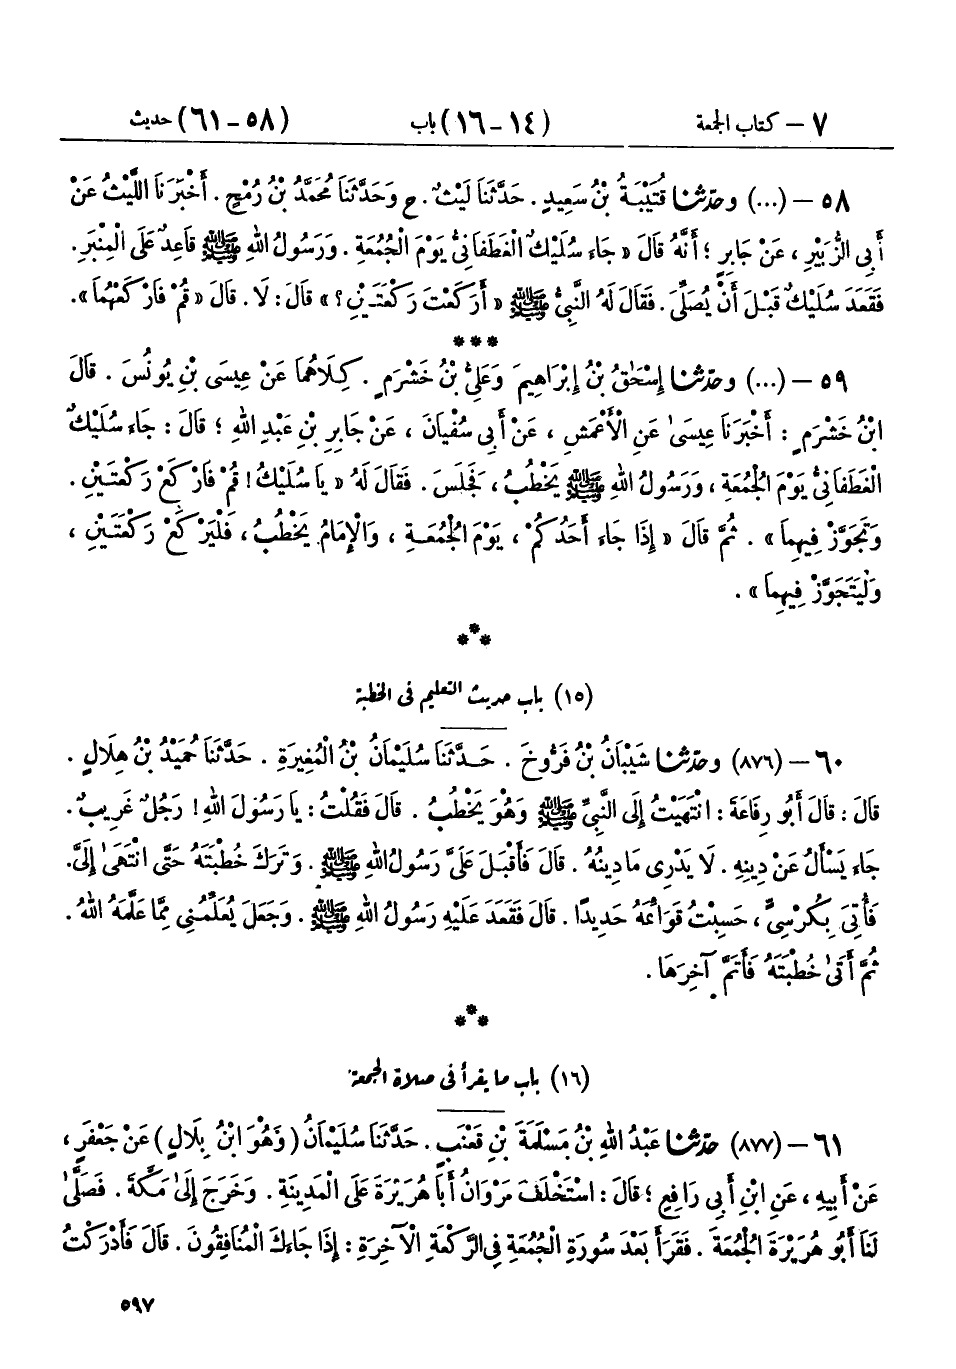 ٧ – كتاب الجمعة (١٤ – ١٦) باب (٥٨ – ٦١) حديث
٥٨ – (...) وحَدَّثَنَا قُتَيْبَةُ بْنُ سَعِيدٍ . حَدَّثَنَا لَيْثٌ . ح وَحَدَّثَنَا مُحَمَّدُ بْنُ رُمْحٍ . أَخْبَرَنَا اللَّيْثُ عَنْ
أَبِي الزُّبَيْرِ ، عَنْ جَابِرٍ ؛ أَنَّهُ قَالَ « جَاءَ سُلَيْكٌ الْغَطَفَانِيُّ يَوْمَ الْجُمُعَةِ . وَرَسُولُ اللهِ ﷺ قَاعِدٌ عَلَى الْمِنْبَرِ .
فَقَعَدَ سُلَيْكٌ قَبْلَ أَنْ يُصَلِّيَ . فَقَالَ لَهُ النَّبِيُّ ﷺ « أَرَكَعْتَ رَكْعَتَيْنِ ؟ » قَالَ : لَا . قَالَ « قُمْ فَارْكَعْهُمَا » .
***
٥٩ – (...) وحَدَّثَنَا إِسْحَٰقُ بْنُ إِبْرَاهِيمَ وَعَلِيُّ بْنُ خَشْرَمٍ . كِلَاهُمَا عَنْ عِيسَى بْنِ يُونُسَ . قَالَ
ابْنُ خَشْرَمٍ : أَخْبَرَنَا عِيسَىٰ عَنِ الْأَعْمَشِ ، عَنْ أَبِي سُفْيَانَ ، عَنْ جَابِرِ بْنِ عَبْدِ اللهِ ؛ قَالَ : جَاءَ سُلَيْكٌ
الْغَطَفَانِيُّ يَوْمَ الْجُمُعَةِ ، وَرَسُولُ اللهِ ﷺ يَخْطُبُ ، فَجَلَسَ . فَقَالَ لَهُ « يَا سُلَيْكُ ! قُمْ فَارْكَعْ رَكْعَتَيْنِ .
وَتَجَوَّزْ فِيهِمَا » . ثُمَّ قَالَ « إِذَا جَاءَ أَحَدُكُمْ ، يَوْمَ الْجُمُعَةِ ، وَالْإِمَامُ يَخْطُبُ ، فَلْيَرْكَعْ رَكْعَتَيْنِ ،
وَلْيَتَجَوَّزْ فِيهِمَا » .
***
(١٥) باب حديث التعليم في الخطبة
٦٠ – (٨٧٦) وحَدَّثَنَا شَيْبَانُ بْنُ فَرُّوخَ . حَدَّثَنَا سُلَيْمَانُ بْنُ الْمُغِيرَةِ . حَدَّثَنَا حُمَيْدُ بْنُ هِلَالٍ .
قَالَ : قَالَ أَبُو رِفَاعَةَ : انْتَهَيْتُ إِلَى النَّبِيِّ ﷺ وَهُوَ يَخْطُبُ . قَالَ فَقُلْتُ : يَا رَسُولَ اللهِ ! رَجُلٌ غَرِيبٌ .
جَاءَ يَسْأَلُ عَنْ دِينِهِ . لَا يَدْرِى مَا دِينُهُ . قَالَ فَأَقْبَلَ عَلَىَّ رَسُولُ اللهِ ﷺ . وَتَرَكَ خُطْبَتَهُ حَتَّى انْتَهَىٰ إِلَىَّ .
فَأُتِيَ بِكُرْسِيٍّ ، حَسِبْتُ قَوَائِمَهُ حَدِيدًا . قَالَ فَقَعَدَ عَلَيْهِ رَسُولُ اللهِ ﷺ . وَجَعَلَ يُعَلِّمُنِي مِمَّا عَلَّمَهُ اللهُ .
ثُمَّ أَتَىٰ خُطْبَتَهُ فَأَتَمَّ آخِرَهَا .
***
(١٦) باب ما يقرأ في صلاة الجمعة
٦١ – (٨٧٧) حَدَّثَنَا عَبْدُ اللهِ بْنُ مَسْلَمَةَ بْنِ قَعْنَبٍ . حَدَّثَنَا سُلَيْمَانُ (وَهُوَ ابْنُ بِلَالٍ) عَنْ جَعْفَرٍ ،
عَنْ أَبِيهِ ، عَنِ ابْنِ أَبِي رَافِعٍ ؛ قَالَ : اسْتَخْلَفَ مَرْوَانُ أَبَا هُرَيْرَةَ عَلَى الْمَدِينَةِ . وَخَرَجَ إِلَىٰ مَكَّةَ . فَصَلَّىٰ
لَنَا أَبُو هُرَيْرَةَ الْجُمُعَةَ . فَقَرَأَ بَعْدَ سُورَةِ الْجُمُعَةِ فِي الرَّكْعَةِ الْآخِرَةِ : إِذَا جَاءَكَ الْمُنَافِقُونَ . قَالَ فَأَدْرَكْتُ
٥٩٧